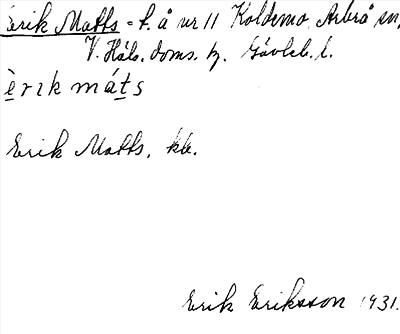 Erik Matts - f. å nr 11 Koldemo Arbrå sn,
V. Häls. doms. hg. Gävleb. l.
è r ɩ k m á t s
Erik Matts, kle.
Erik Eriksson 1931.